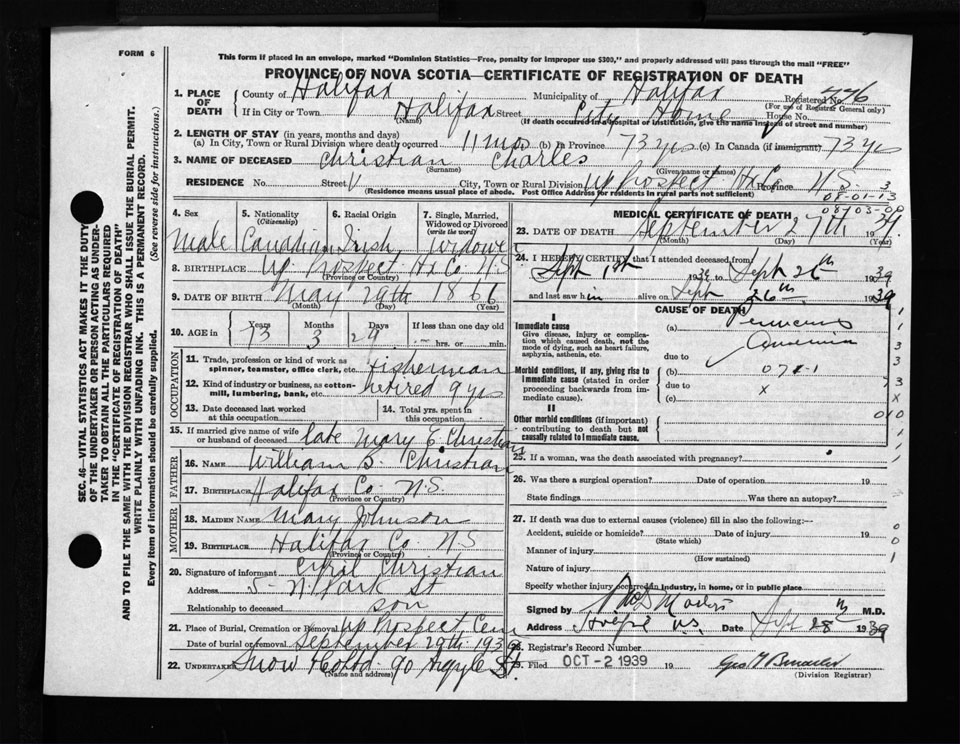 FORM 6
This form if placed in an envelope, marked "Dominion Statistics—Free, penalty for improper use $300," and properly addressed will pass through the mail "FREE"
PROVINCE OF NOVA SCOTIA—CERTIFICATE OF REGISTRATION OF DEATH
1. PLACE OF DEATH County of Halifax Municipality of Halifax Registered No. 776
(For use of Registrar General only)
If in City or Town Halifax (Name) Street City Home House No.
(If death occurred in a hospital or institution, give the name instead of street and number)
2. LENGTH OF STAY (in years, months and days)
(a) In City, Town or Rural Division where death occurred 11 mos (b) In Province 73 yrs (c) In Canada (if immigrant) 73 yrs
3. NAME OF DECEASED Christian Charles
(Surname) (Given name or names)
RESIDENCE No. Street City, Town or Rural Division Up Prospect Hx Co Province N.S. 3
(Residence means usual place of abode. Post Office Address for residents in rural parts not sufficient)
08-01-13
08-03-00
4. Sex Male
5. Nationality (Citizenship) Canadian
6. Racial Origin Irish
7. Single, Married, Widowed or Divorced (write the word) Widowe
8. BIRTHPLACE Up Prospect Hx Co N S
(Province or Country)
9. DATE OF BIRTH May 29th 1866
(Month) (Day) (Year)
10. AGE in Years 73 Months 3 Days 29 If less than one day old
hrs. or min.
OCCUPATION
11. Trade, profession or kind of work as spinner, teamster, office clerk, etc. fisherman
12. Kind of industry or business, as cotton-mill, lumbering, bank, etc. retired 9 yrs
13. Date deceased last worked at this occupation
14. Total yrs. spent in this occupation
15. If married give name of wife or husband of deceased late Mary E Christian
FATHER
16. NAME William S. Christian
17. BIRTHPLACE Halifax Co N.S.
(Province or Country)
MOTHER
18. MAIDEN NAME Mary Johnson
19. BIRTHPLACE Halifax Co N S
(Province or Country)
20. Signature of informant Cyril Christian
Address 5- N Park St
Relationship to deceased son
21. Place of Burial, Cremation or Removal Up Prospect Cem
Date of burial or removal September 29th 1939
22. UNDERTAKER Snow & Co Ltd 90 Argyle St
(Name and address)
MEDICAL CERTIFICATE OF DEATH
23. DATE OF DEATH September 27th 1939
(Month) (Day) (Year)
24. I HEREBY CERTIFY that I attended deceased from
Sept 1st 1939 to Sept 26th 1939
and last saw him alive on Sept 26th 1939
CAUSE OF DEATH
I
Immediate cause
Give disease, injury or complication which caused death, not the mode of dying, such as heart failure, asphyxia, asthenia, etc.
(a) Pernicious Anaemia
due to
Morbid conditions, if any, giving rise to immediate cause (stated in order proceeding backwards from immediate cause).
(b) 071-1
due to x
(c)
II
Other morbid conditions (if important) contributing to death but not causally related to immediate cause.
25. If a woman, was the death associated with pregnancy?
26. Was there a surgical operation? Date of operation 19
State findings Was there an autopsy?
27. If death was due to external causes (violence) fill in also the following:—
Accident, suicide or homicide? Date of injury 19
(State which)
Manner of injury
(How sustained)
Nature of injury
Specify whether injury occurred in industry, in home, or in public place
Signed by M.D.
Address Date Sept 28th 1939
28. Registrar's Record Number
29. Filed OCT - 2 1939 19
(Division Registrar)
SEC. 46—VITAL STATISTICS ACT MAKES IT THE DUTY
OF THE UNDERTAKER OR PERSON ACTING AS UNDER-
TAKER TO OBTAIN ALL THE PARTICULARS REQUIRED
IN THE "CERTIFICATE OF REGISTRATION OF DEATH"
AND TO FILE THE SAME WITH THE DIVISION REGISTRAR WHO SHALL ISSUE THE BURIAL PERMIT.
WRITE PLAINLY WITH UNFADING INK. THIS IS A PERMANENT RECORD.
Every item of information should be carefully supplied. (See reverse side for instructions.)